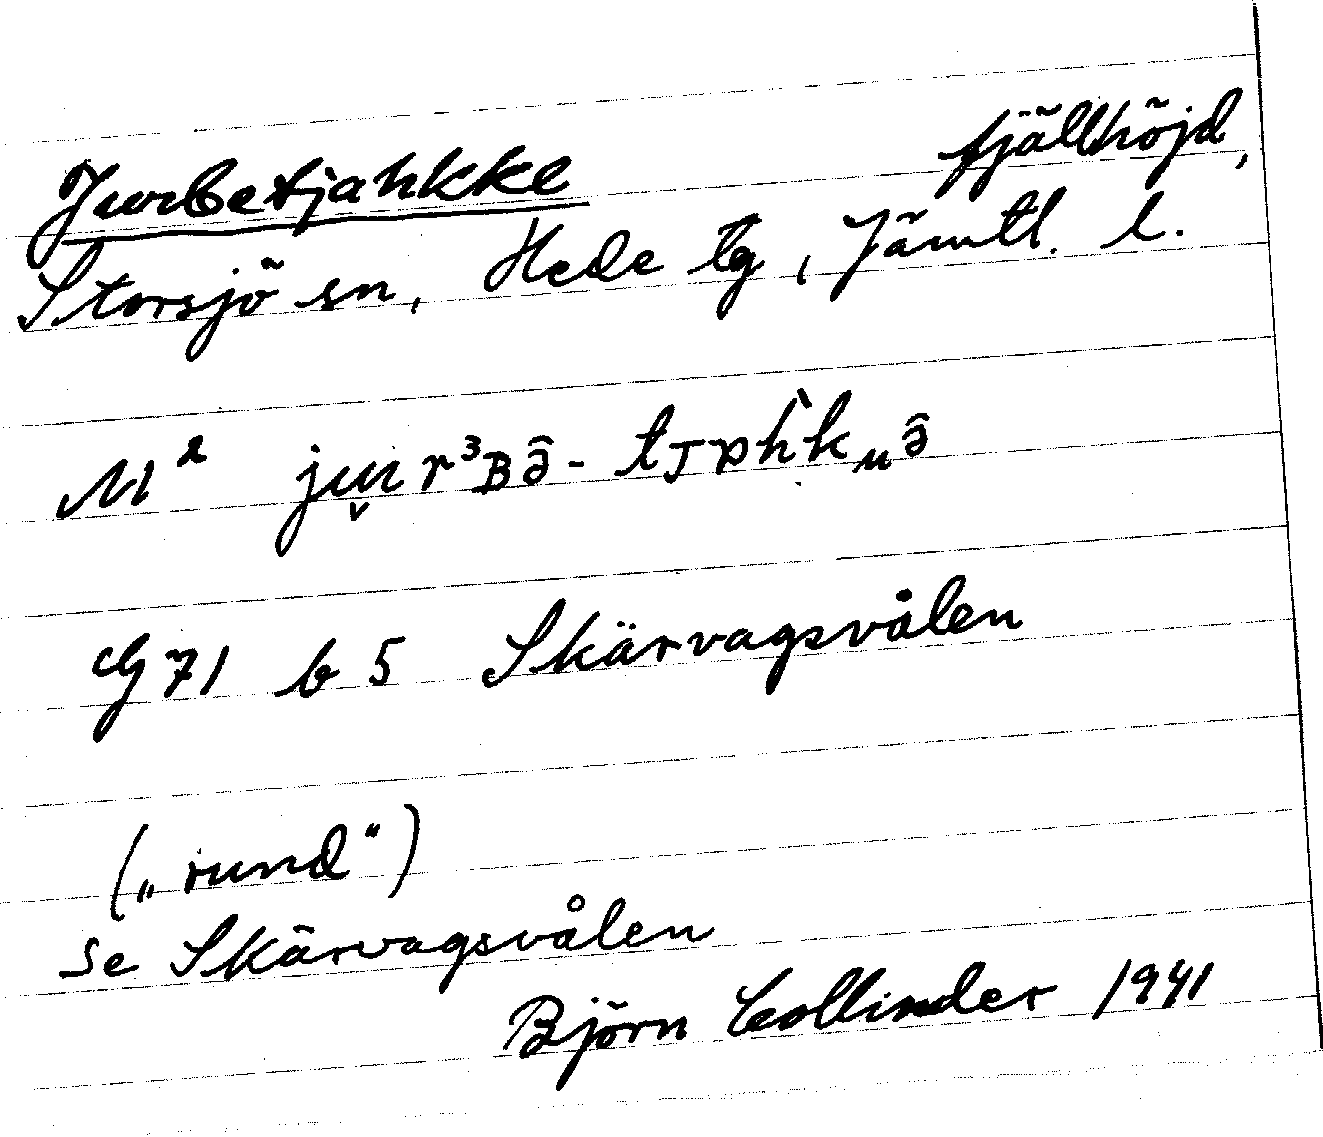 Jurbetjahkke fjällhöjd,
Storsjö sn, Hede tg, Jämtl. l.
G 71 b 5 Skärvagsvålen
(„rund“)
Se Skärvagsvålen
Björn Collinder 1941